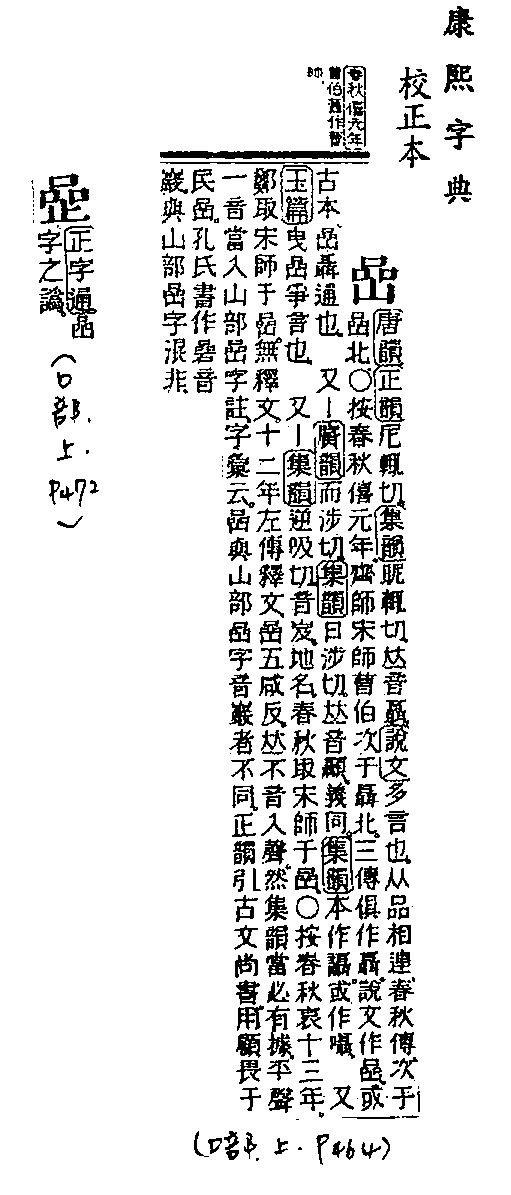 康熙字典
校正本
春秋僖元年
曹伯聶作曹
師
嵒
唐韻正韻尼輒切集韻昵輒切𠀤音聶說文多言也从品相連春秋傳次于
嵒北〇按春秋僖元年齊師宋師曹伯次于聶北三傳俱作聶說文作嵒或
古本嵒聶通也 又丨廣韻而涉切集韻日涉切𠀤音顳義同集韻本作讘或作囁 又
玉篇曳嵒爭言也 又丨集韻逆吸切音岌地名春秋取宋師于嵒〇按春秋哀十三年
鄭取宋師于嵒無釋文十二年左傳釋文嵒五咸反𠀤不音入聲然集韻當必有據平聲
一音當入山部嵒字註字彙云嵒與山部嵒字音巖者不同正韻引古文尚書用顧畏于
民嵒孔氏書作碞音
巖與山部嵒字混非
正字通嵒
字之譌
(口部.上.P472)
(口部.上.P464)